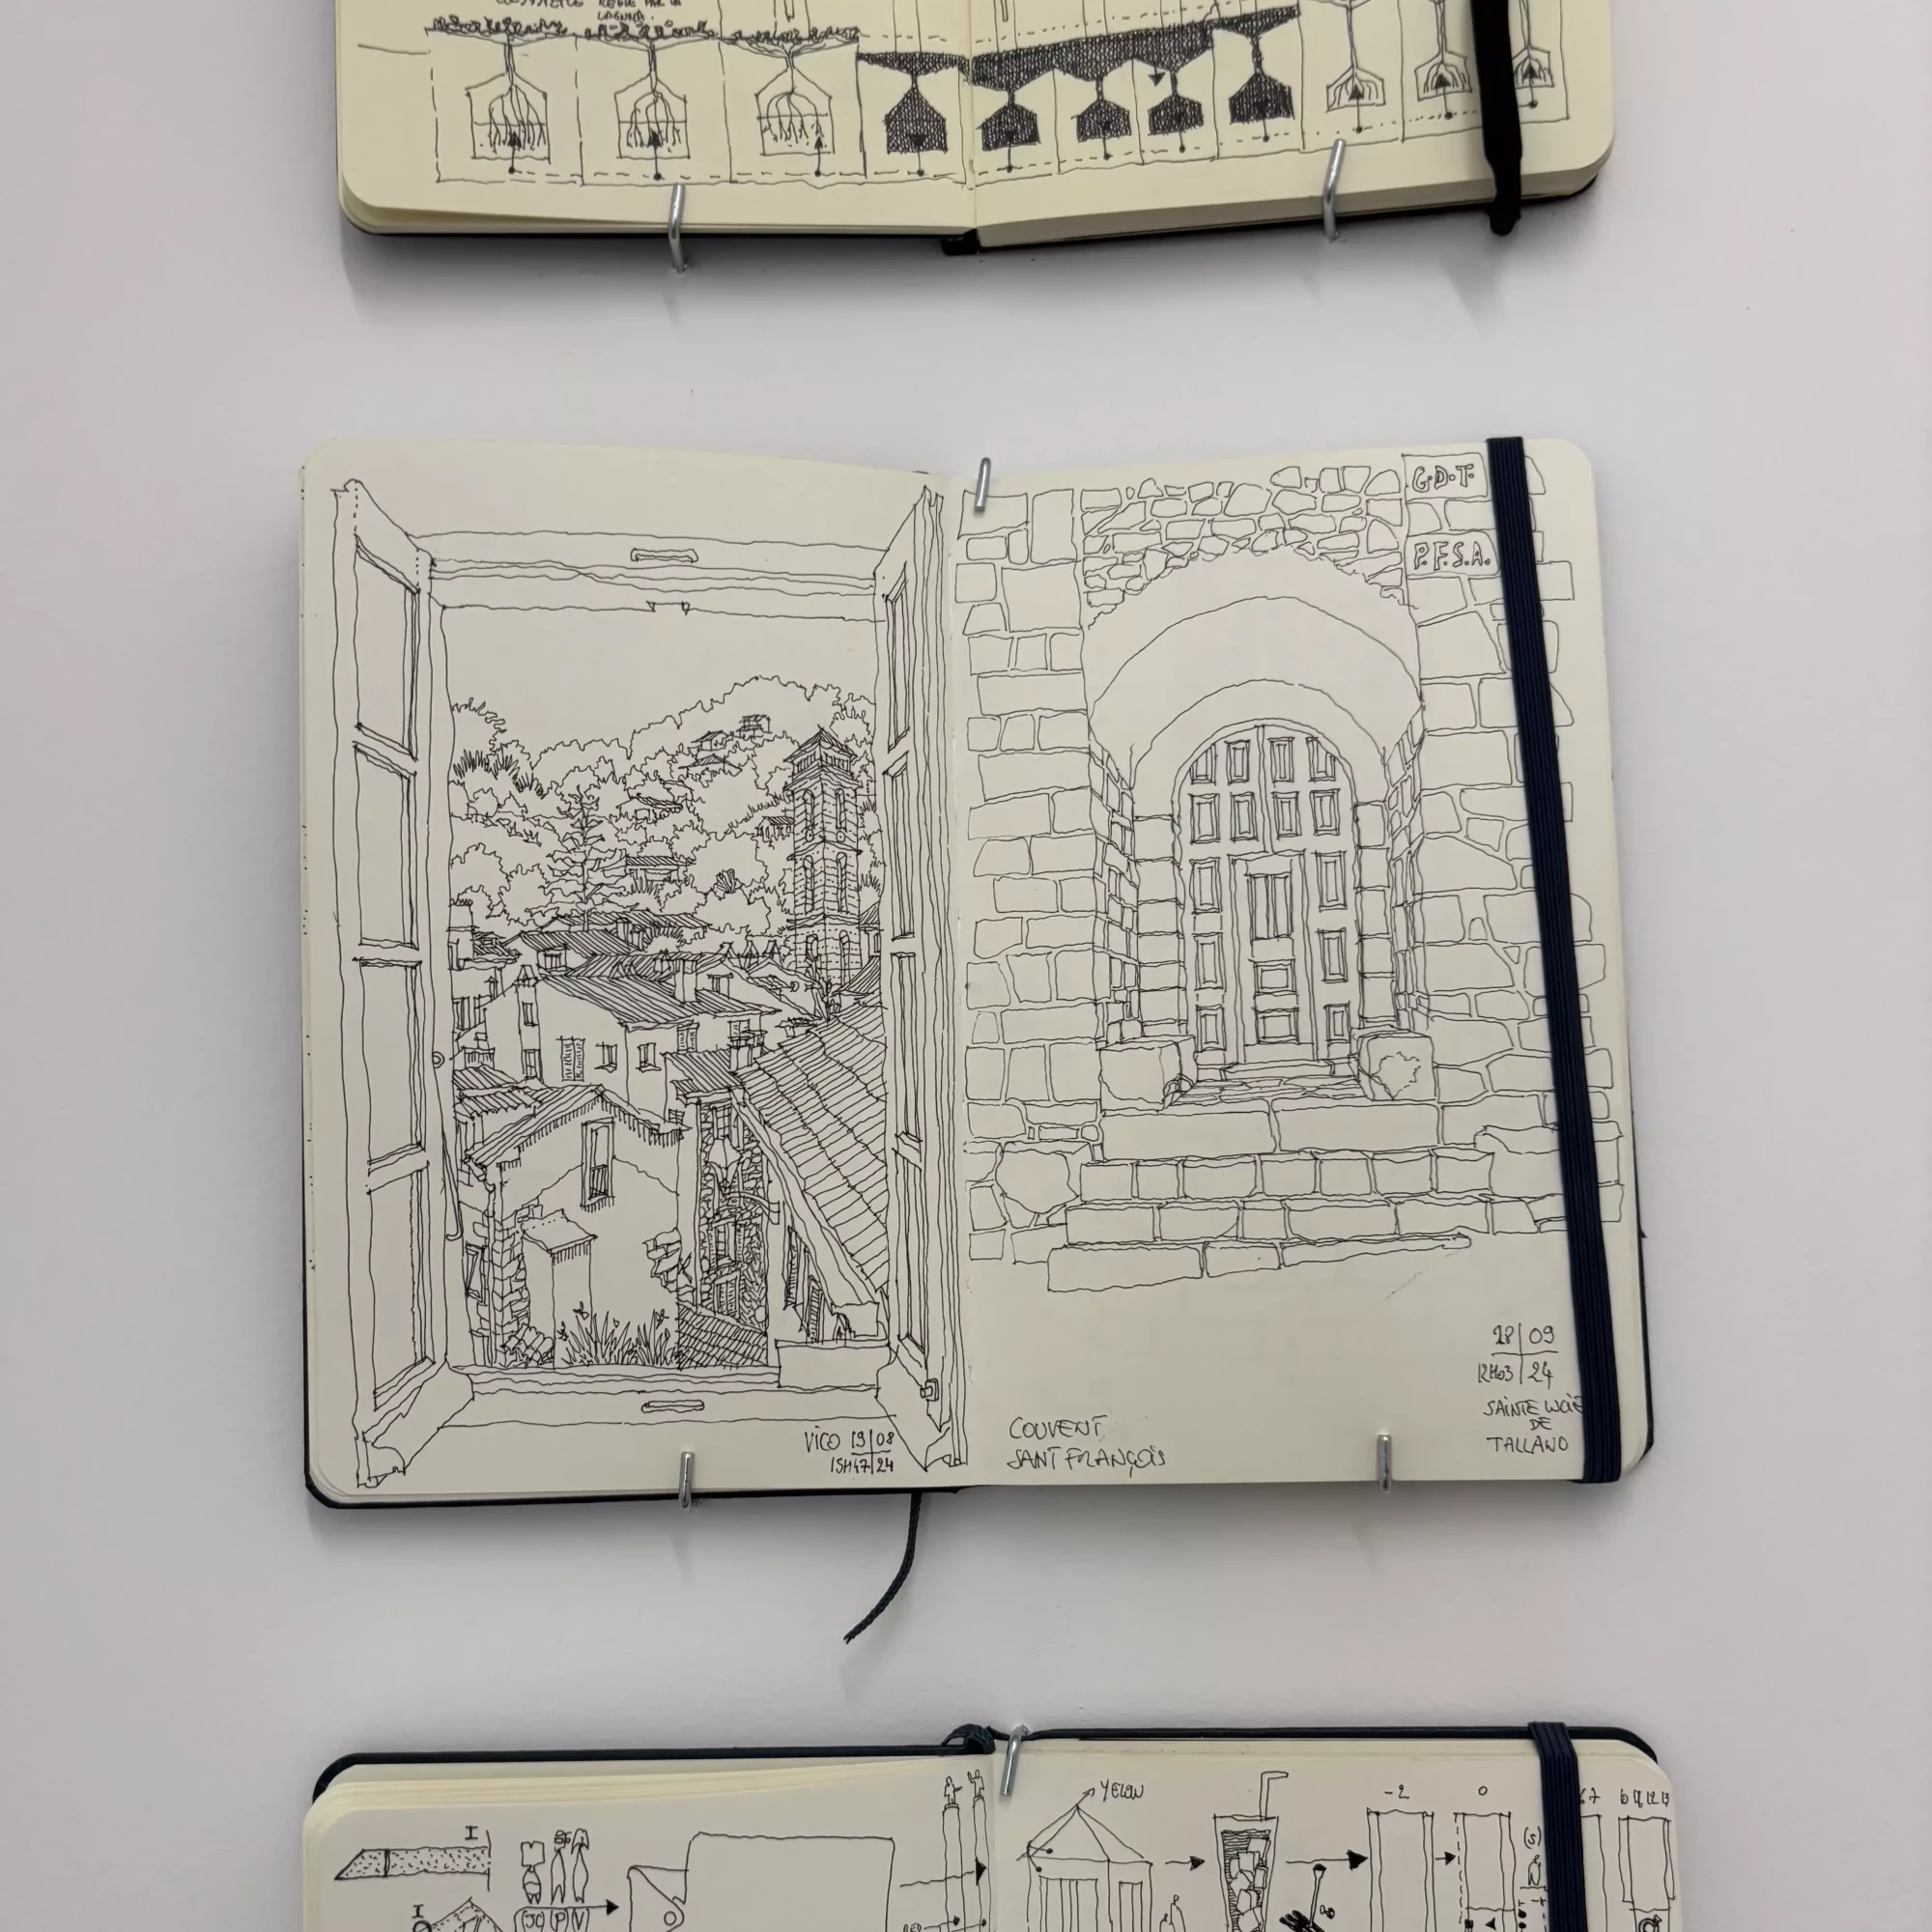 LAGUNA.
G.D.T.
P.F.S.A.
VICO 19|08
15H47|24
28|09
12H03|24
SAINTE LUCIE
DE
TALLANO
COUVENT
SANT FRANÇOIS
YELOW
-2
0
I
(S)
I
(P) (V)